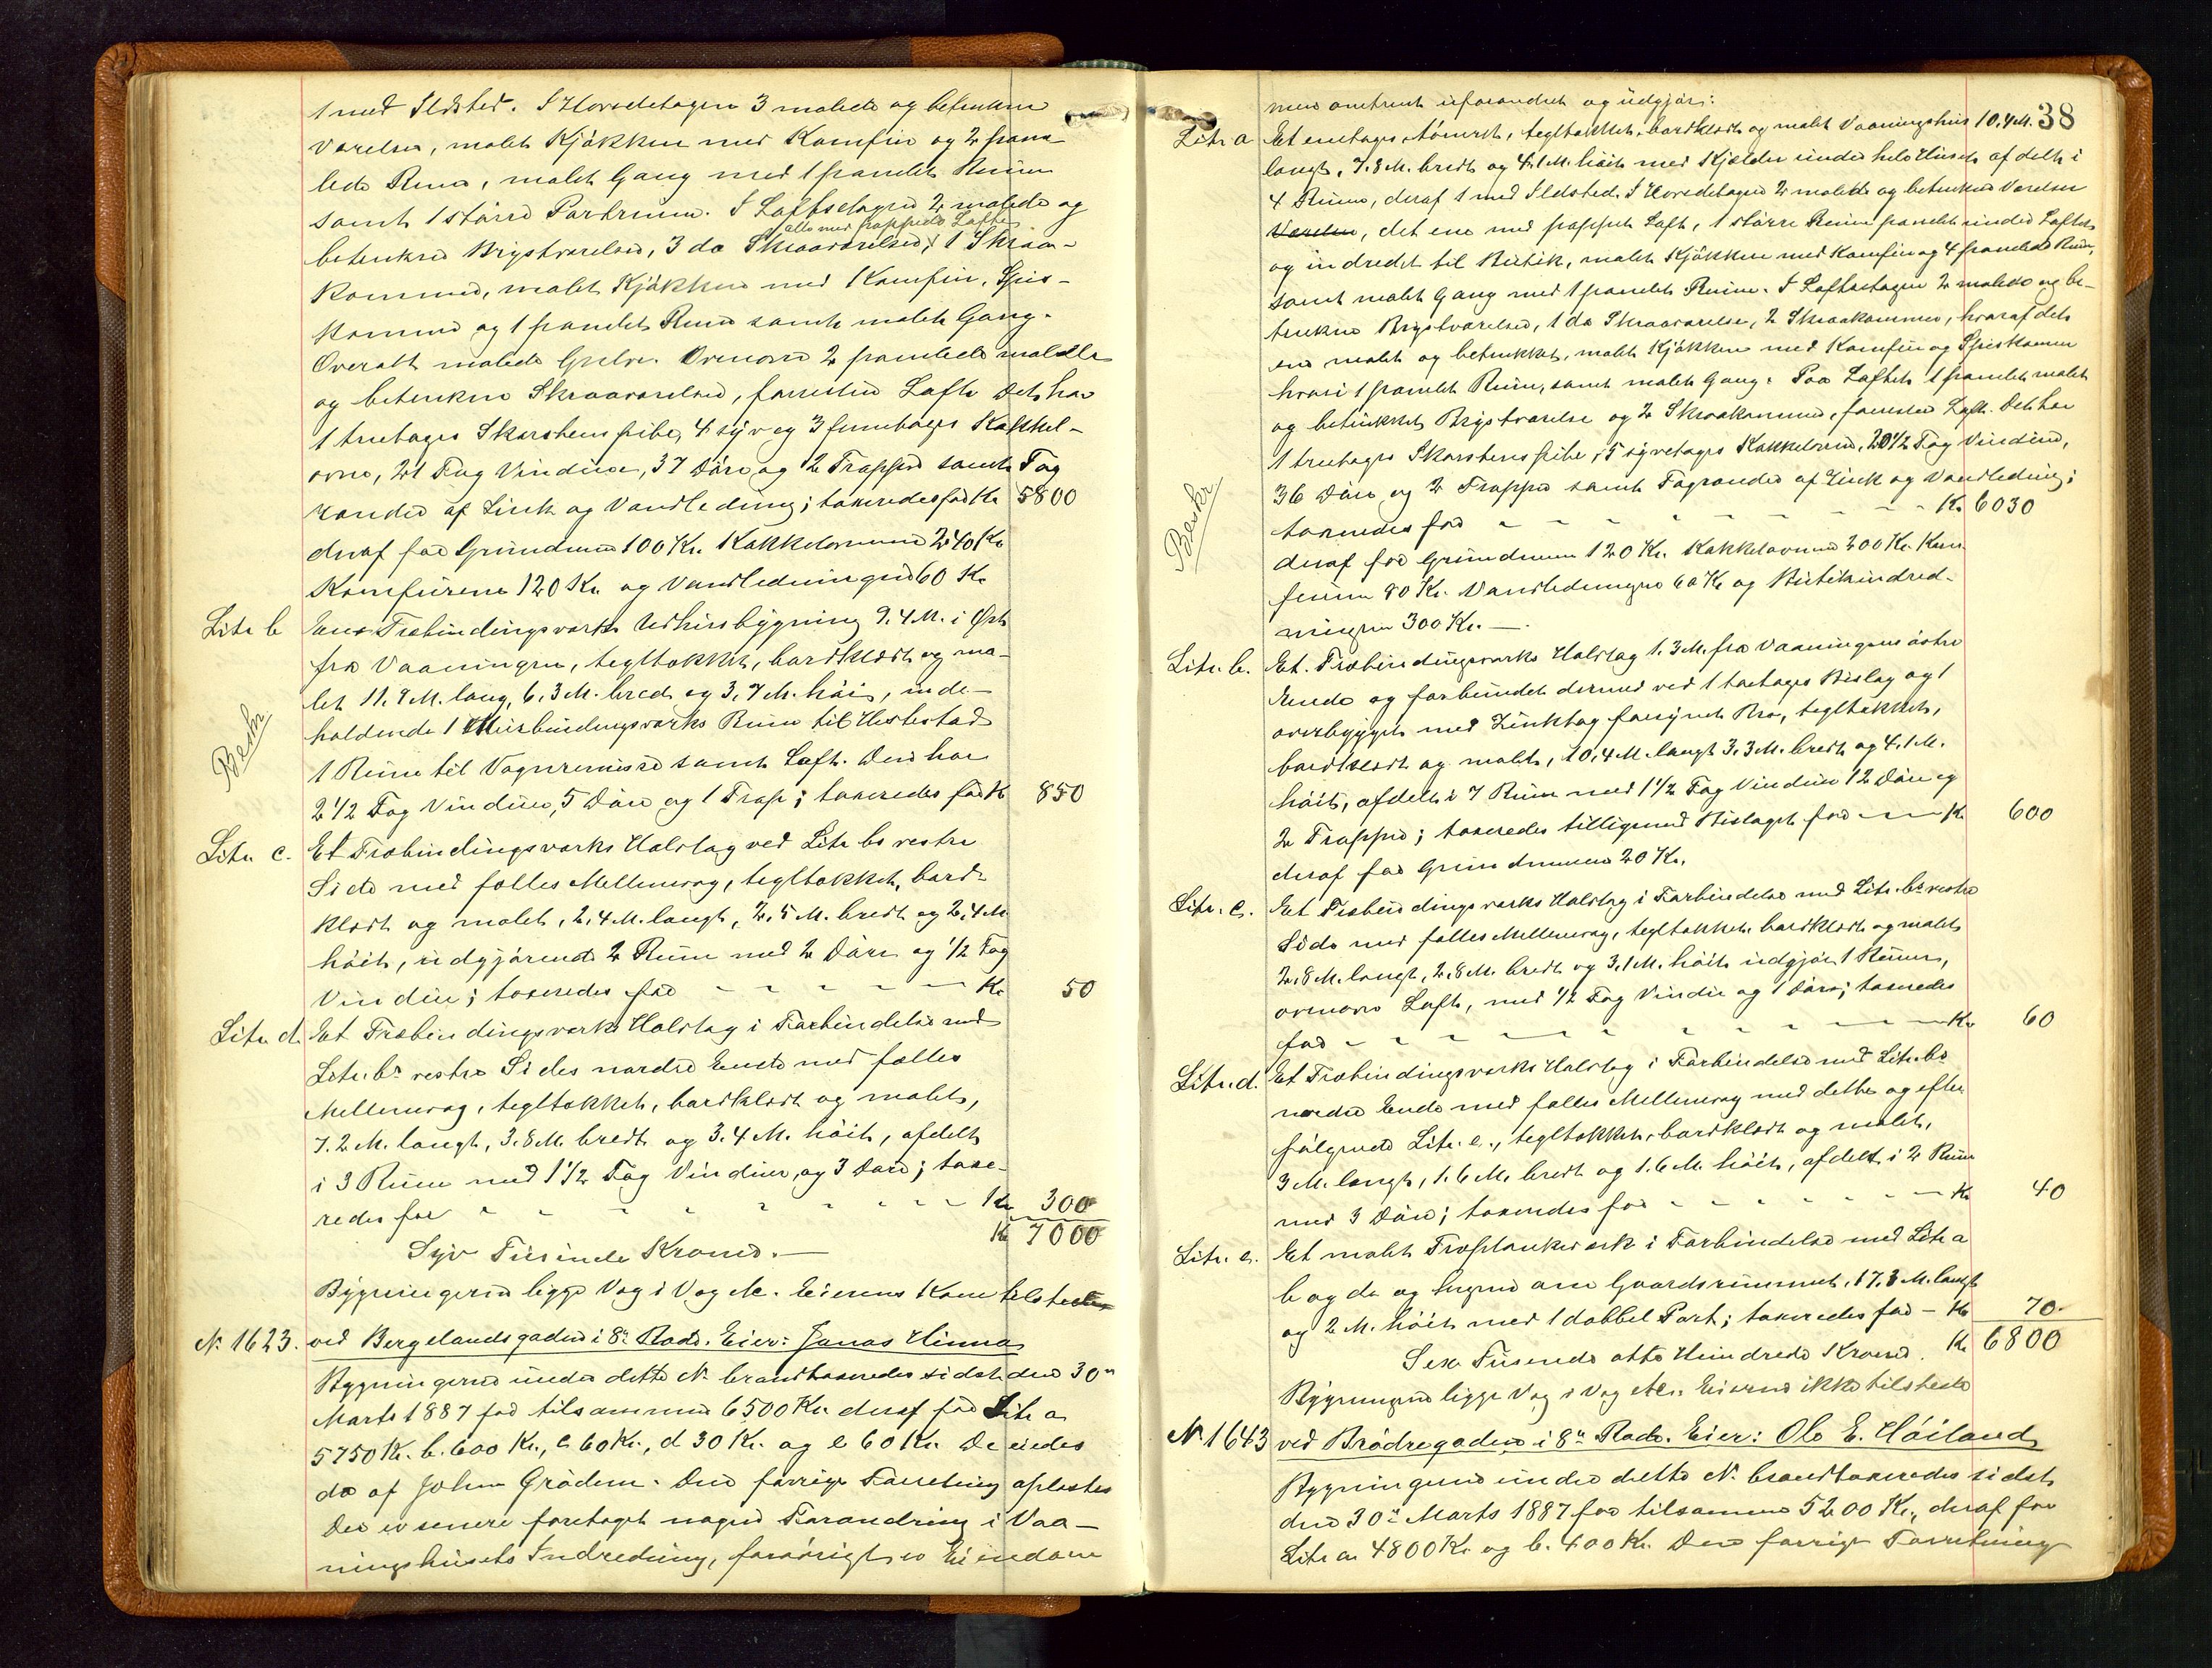 1 med Ildsted. I Hovedetagen 3 malede og betrukne
Værelser, malet Kjøkken med Komfür og 2 pane
lede Rum, malet Gang med 1 panelet Rum
samt 1 større Portrum. I Loftsetagen 2 malede og
alle med pappede Lofte
betrukne Brystværelser, 3 do Skraaværelser, 1 Skraa-
kammer, malet Kjøkken med Komfür, Spis-
kammer og 1 panelet Rum samt malet Gang.
Overalt malede Gulve. Ovenover 2 panelede malede
og betrukne Skraaværelser, forresten Loft. Det har
1 treetages Skorstenspibe, 4 syv og 3 femetages Kakkel-
ovne, 21 Fag Vindüer, 37 Døre og 2 Trapper samt Tag
render af Zink og Vandledning; taxeredes for Kr. 5800
deraf for Grundmur 100 Kr. Kakkelovnene 240 Kr.
Komfürene 120 Kr. og Vandledningen 60 Kr.
Litr. b. Træbindingsværks Udhüsbygning 9.4 M. i Øst
fra Vaaningen, tegltækket, bordklædt og ma-
let 11.9 M. lang, 6.3 M. bred og 3.7 M. høi, inde-
holdende 1 Murbindingsværks Rum til Hestestad
Beskr.
1 Rum til Vognremise samt Loft. Den har
2 1/2 Fag Vindüer, 5 Døre og 1 Trap; taxeredes for Kr 850
Litr. c. Et Træbindingsværks Halvtag ved Litr. bs vestre
Side med fælles Mellemvæg, tegltækket, bord-
klædt og malet, 2.4 M. langt, 2.5 M. bredt og 2.4 M.
høit, udgjørende 2 Rum med 2 Døre og 1/2 Fag
Vindü; taxeredes for - - - - - Kr. 50
Litr. d. Et Træbindingsværks Halvtag i Forbindelse med
Litr. bs vestre Sides nordre Ende med fælles
Mellemvæg, tegltækket, bordklædt og malet,
7.2 M. langt, 3.8 M. bredt og 3.4 M. høit, afdelt
i 3 Rum med 1 1/2 Fag Vindüer, og 3 Døre; taxe-
redes for - - - - - - - Kr. 300
Kr. 7000
Syv Tusinde Kroner. —
Bygningerne ligge Væg i Væg &c. Eierens Kone tilstede
N. 1623. ved Bergelandsgaden i 8de Rode. Eier: Jonas Hinna
Bygningerne under dette N. brandtaxeredes sidst den 30te
Marts 1887 for tilsammen 6500 Kr. deraf for Litr. a
5750 Kr. b. 600 Kr., c. 60 Kr., d 30 Kr. og e 60 Kr. De eiedes
da af John Grødem. Den forrige Forretning oplæstes
Der er senere foretaget nogen Forandring i Vaa-
ningshusets Indredning, forøvrigt er Eiendom
38
men omtrent uforandret og udgjør:
Litr. a Et enetages tømret, tegltækket, bordklædt og malet Vaaningshus 10.4 M.
langt, 7.8 M. bredt og 4.1 M. høit med Kjælder under hele Huset afdelt i
4 Rum, deraf 1 med Ildsted. I Hovedetagen 2 malede og betrukne Værelser
Værelser, det ene med pappet Loft, 1 større Rum panelet under Loftet
og indredet til Butik, malet Kjøkken med Komfür og 4 panelede Rum,
samt malet Gang med 1 panelet Rum. I Loftsetagen 2 malede og be-
trukne Brystværelser, 1 do Skraaværelse, 2 Skraakammer, hvoraf det
ene malet og betrukket, malet Kjøkken med Komfür og Spiskammer
hvori 1 panelet Rum, samt malet Gang. Paa Loftet 1 panelet malet
og betrukket Brystværelse og 2 Skraakammer, forresten Loft. Det har
1 treetages Skorstenspibe, 5 syvetages Kakkelovne, 20 1/2 Fag Vindüer,
Beskr.
36 Døre og 2 Trapper samt Tagrender af Zink og Vandledning;
taxeredes for - - - - - - - Kr 6030
deraf for Grundmuren 120 Kr. Kakkelovnene 200 Kr. Kom-
fürene 80 Kr. Vandledningen 60 Kr og Butikindred-
ningen 300 Kr. —
Litr. b. Et Træbindingsværks Halvtag 1.3 M. fra Vaaningens østre
Ende og forbundet dermed ved 1 toetages Bislag og 1
overbygget med Zinktag forsynet Bro, tegltækket,
bordklædt og malet, 10.4 M. langt 3.3 M. bredt og 4.1 M.
høit, afdelt i 7 Rum med 1 1/2 Fag Vindüer 12 Døre og
2 Trapper; taxeredes tilligemed Bislaget for - - Kr. 600
deraf for Grundmuren 20 Kr.
Litr. c. Et Træbindingsværks Halvtag i Forbindelse med Litr. bs vestre
Side med fælles Mellemvæg, tegltækket, bordklædt og malet
2.8 M. langt, 2.8 M. bredt og 3.1 M. høit udgjør 1 Rum,
ovenover Loft, med 1/2 Fag Vindü og 1 Dør; taxeredes
for - - - - - - - Kr. 60
Litr. d. Et Træbindingsværks Halvtag i Forbindelse med Litr. bs
nordre Ende med fælles Mellemvæg med dette og efter
følgende Litr. e., tegltækket, bordklædt og malet,
3 M. langt, 1.6 M. bredt og 1.6 M. høit, afdelt i 2 Rum
med 3 Døre; taxeredes for - - - - - - Kr. 40
Litr. e. Et malet Træplankeværk i Forbindelse med Litr. a
b og d og hegner om Gaardsrummet, 17.3 M. langt
og 2 M. høit med 1 dobbel Port; taxeredes for - Kr 70.
Sex Tusende otte Hundrede Kroner. Kr. 6800
Bygningerne ligge Væg i Væg &c. Eieren ikke tilstede
N. 1643 ved Brødregaden i 8de Rode. Eier: Ole E. Høiland
Bygningerne under dette N. brandtaxeredes sidst
den 30te Marts 1887 for tilsammen 5200 Kr., deraf for
Litr. a. 4800 Kr og b. 400 Kr. Den forrige Forretning